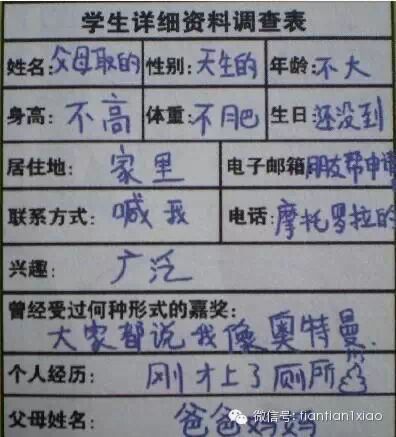 学生详细资料调查表
姓名:父母取的 性别:天生的 年龄:不大
身高:不高 体重:不肥 生日:还没到
居住地:家里 电子邮箱:朋友帮申请
联系方式:喊我 电话:摩托罗拉的
兴趣:广泛
曾经受过何种形式的嘉奖:
大家都说我像奥特曼
个人经历:刚才上了厕所
父母姓名:爸爸妈妈
微信号: tiantian1xiao